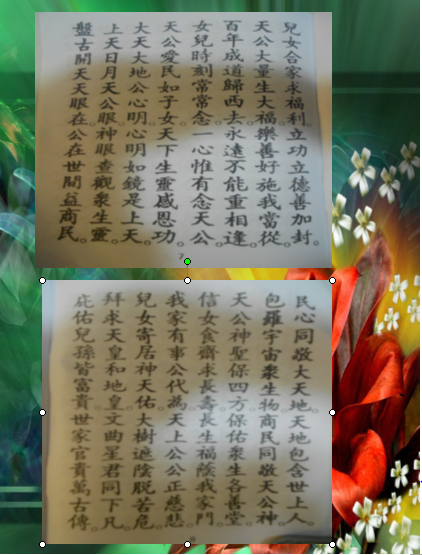 兒女合家求福利。立功立德善加封。
天公大量生大福。樂善好施我當從。
百年成道歸西去。永遠不能重相逢。
女兒時刻常常念。一心惟有念天公。
天公愛民如子女。天下生靈感恩功。
大天大地公心明。心明如鏡是上天。
上天日月天公眼。神眼查觀衆生靈。
盤古開天天眼在。公在世間益商民。
7
民心同敬大天地。天地包含世上人。
包羅宇宙衆生物。商民同敬天公神。
天公神聖保四方。保佑衆生各善堂。
信女食齋求長壽。長生福蔭我家門。
我家有事公代為。天上公公正慈悲。
兒女寄居神天佑。大樹遮陰脱苦危。
拜求天皇和地皇。文曲星君同下凡。
庇佑兒孫皆富貴。世家官貴萬古傳。